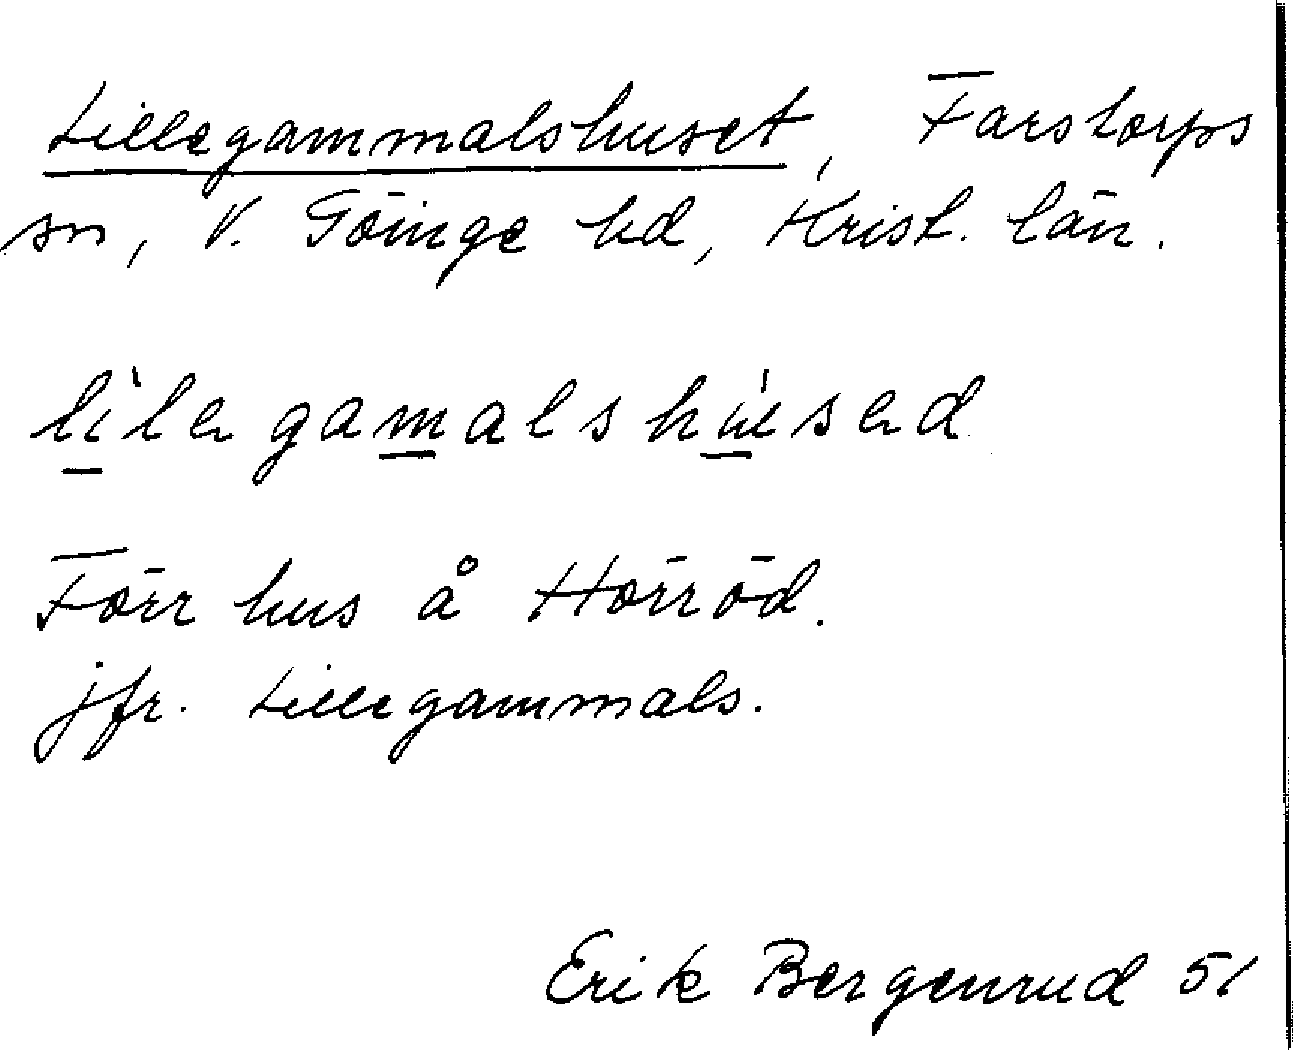 Lillegammalshuset, Farstorps
sn, V. Göinge hd, Krist. län.
lìlə gamalshúsəd
Förr hus å Horröd.
jfr. Lillegammals.
Erik Bergenrud 51